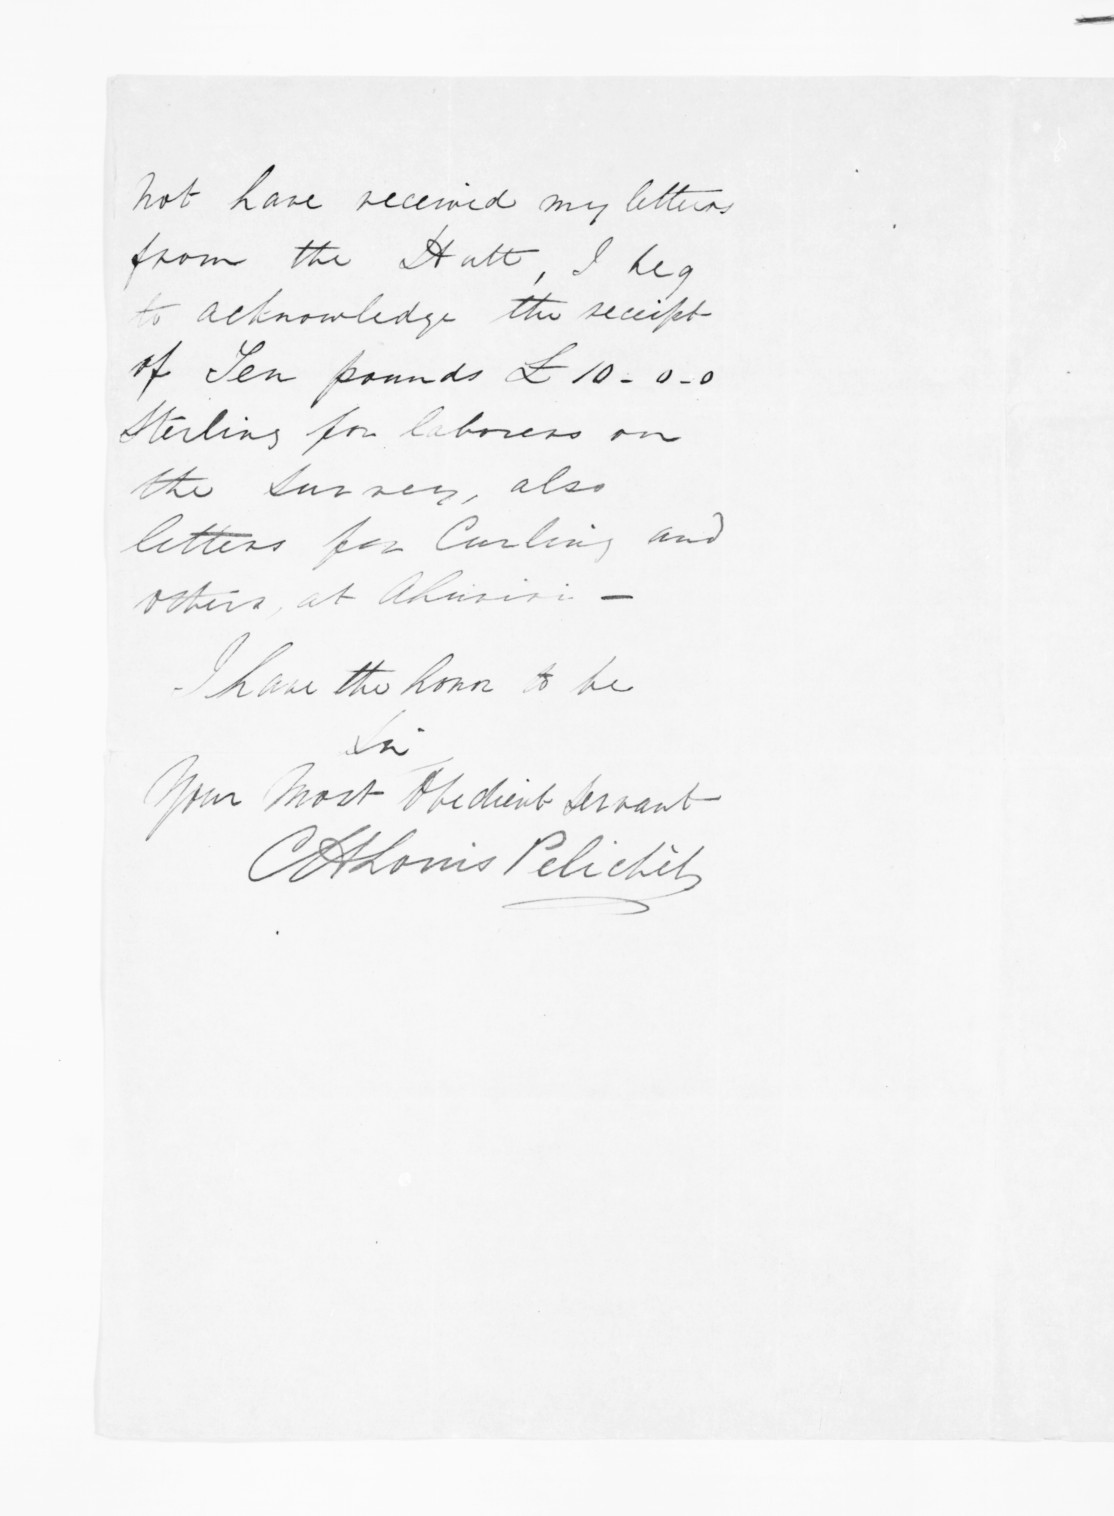 not have received my letters
from the Hutt, I beg
to acknowledge the receipt
of Ten pounds £10-0-0
Sterling for laborers on
the Survey, also
letters for Curling and
others, at Ahuriri —
I have the honor to be
Sir
Your Most Obedient Servant
C H Louis Pelichèt